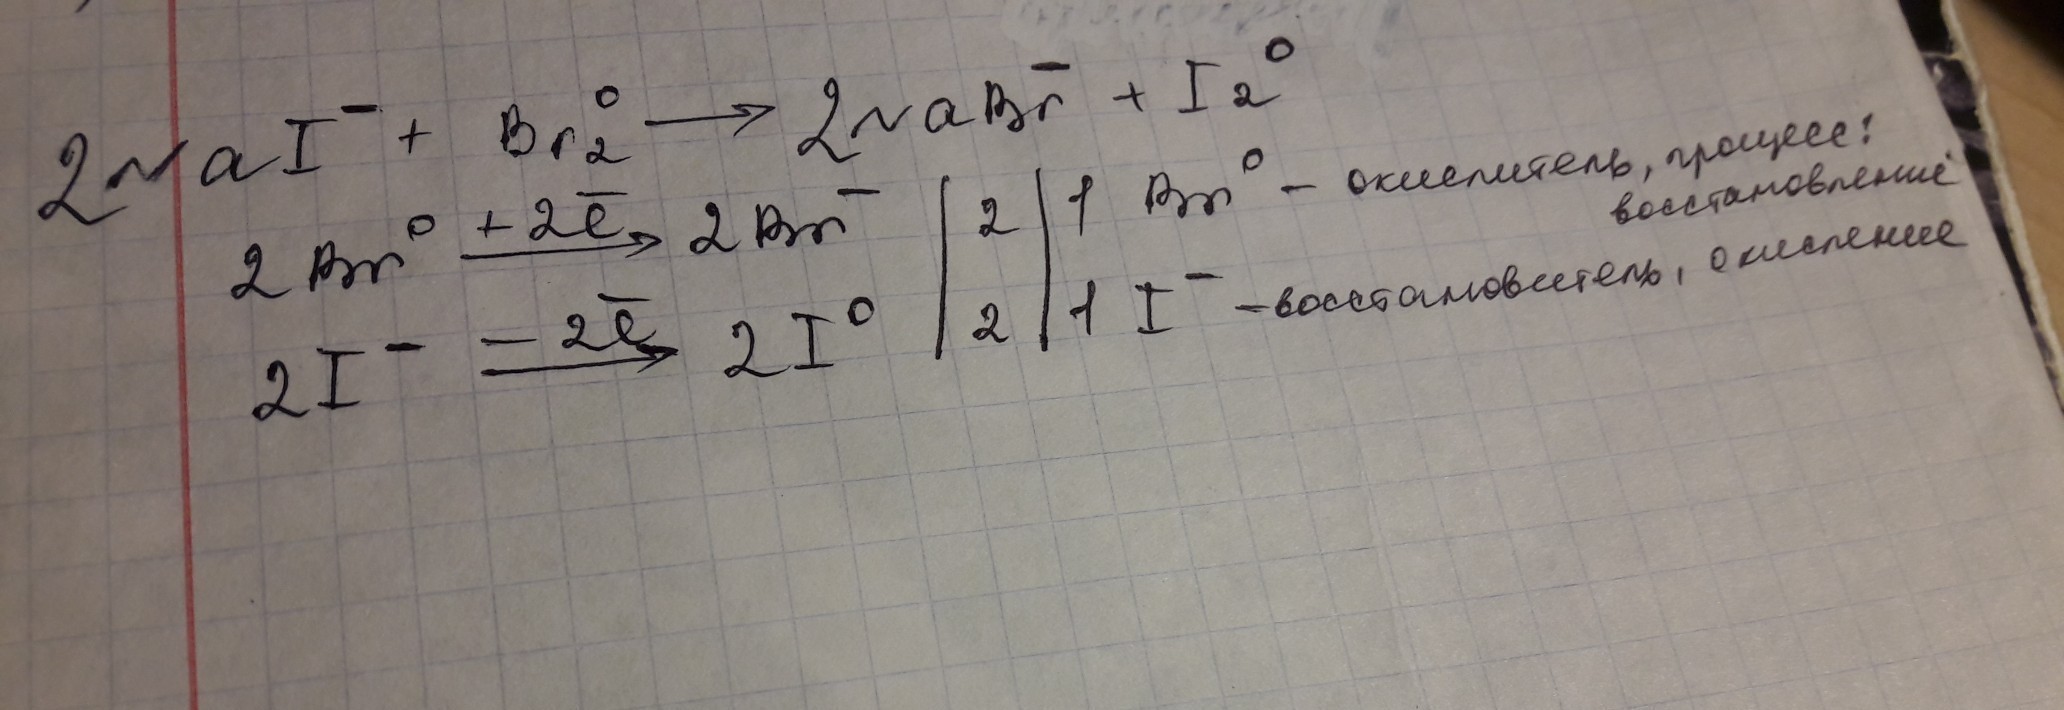 2NaI⁻ + Br₂⁰ → 2NaBr⁻ + I₂⁰
2Br⁰ +2ē → 2Br⁻ | 2 | 1 Br⁰ – окислитель, процесс:
восстановление
2I⁻ –2ē → 2I⁰ | 2 | 1 I⁻ – восстановитель, окисление